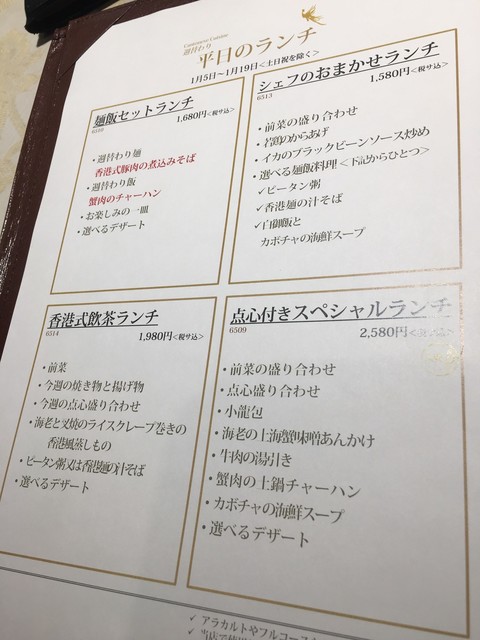 Cantonese Cuisine
週替わり 平日のランチ
1月5日〜1月19日<土日祝を除く>
麺飯セットランチ
6510 1,680円<税サ込>
・週替わり麺
香港式豚肉の煮込みそば
・週替わり飯
蟹肉のチャーハン
・お楽しみの一皿
・選べるデザート
シェフのおまかせランチ
6513 1,580円<税サ込>
・前菜の盛り合わせ
・若鶏のからあげ
・イカのブラックビーンソース炒め
・選べる麺飯料理<下記からひとつ>
✓ピータン粥
✓香港麺の汁そば
✓白御飯と
カボチャの海鮮スープ
香港式飲茶ランチ
6514 1,980円<税サ込>
・前菜
・今週の焼き物と揚げ物
・今週の点心盛り合わせ
・海老と叉焼のライスクレープ巻きの
香港風蒸しもの
・ピータン粥又は香港麺の汁そば
・選べるデザート
点心付きスペシャルランチ
6509 2,580円<税サ込>
・前菜の盛り合わせ
・点心盛り合わせ
・小龍包
・海老の上海蟹味噌あんかけ
・牛肉の湯引き
・蟹肉の土鍋チャーハン
・カボチャの海鮮スープ
・選べるデザート
✓ アラカルトやフルコース
✓